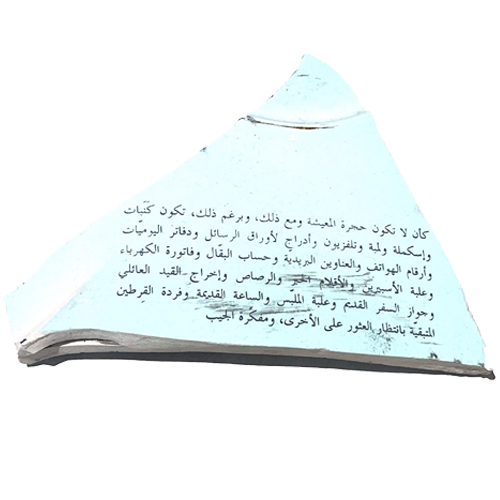 كأن لا تكون حجرة المعيشة ومع ذلك، وبرغم ذلك، تكون كَنَبات
وإسكملة ولمبة وتلفزيون وأدراج لأوراق الرسائل ودفاتر اليوميّات
وأرقام الهواتف والعناوين البريدية وحساب البقّال وفاتورة الكهرباء
وعلبة الأسبرين والأقلام الحبر والرصاص وإخراج القيد العائلي
وجواز السفر القديم وعلبة الملبّس والساعة القديمة وفردة القرطين
المتبقيّة بانتظار العثور على الأخرى، ومفكرة الجيب